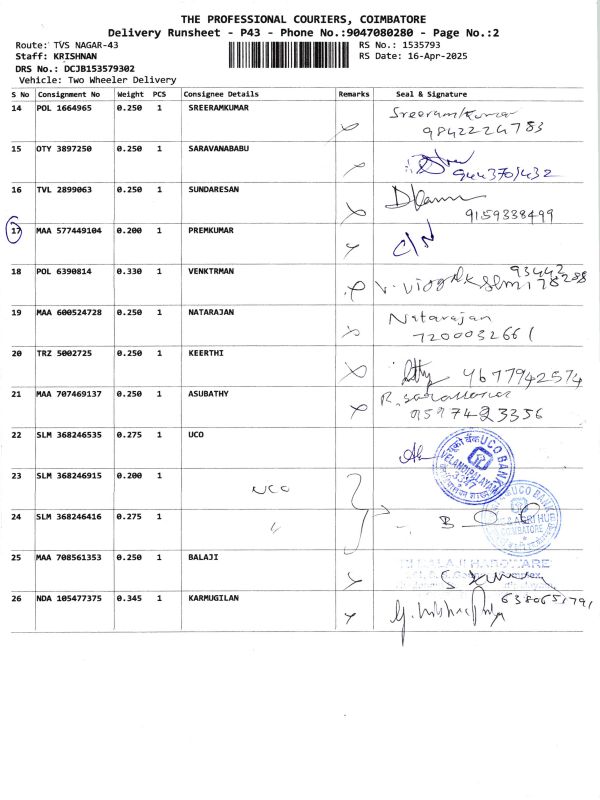 THE PROFESSIONAL COURIERS, COIMBATORE
Delivery Runsheet - P43 - Phone No.:9047080280 - Page No.:2
Route: TVS NAGAR-43 RS No.: 1535793
Staff: KRISHNAN RS Date: 16-Apr-2025
DRS No.: DCJB153579302
Vehicle: Two Wheeler Delivery
S No Consignment No Weight PCS Consignee Details Remarks Seal & Signature
14 POL 1664965 0.250 1 SREERAMKUMAR Sreeramkumar
9842224783
15 OTY 3897250 0.250 1 SARAVANABABU
9443701432
16 TVL 2899063 0.250 1 SUNDARESAN
9159338499
17 MAA 577449104 0.200 1 PREMKUMAR C/N
18 POL 6390814 0.330 1 VENKTRMAN 93442
78288
19 MAA 600524728 0.250 1 NATARAJAN Natarajan
7200032661
20 TRZ 5002725 0.250 1 KEERTHI
9677942574
21 MAA 707469137 0.250 1 ASUBATHY
9597423356
22 SLM 368246535 0.275 1 UCO
यूको बैंक UCO BANK
VELANDIPALAYAM
3347
23 SLM 368246915 0.200 1 UCO
UCO BANK
24 SLM 368246416 0.275 1 "
COIMBATORE
25 MAA 708561353 0.250 1 BALAJI
HARDWARE
26 NDA 105477375 0.345 1 KARMUGILAN 6380651791